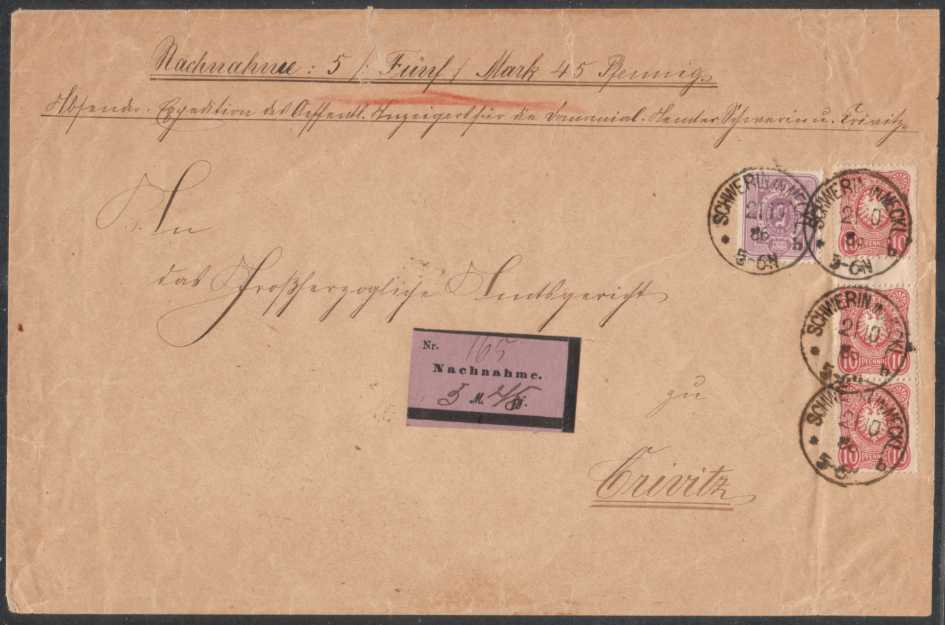 Nachnahme: 5 /: Fünf / Mark 45 Pfennig.
Absender. Expedition des Oeffentl. Anzeigers für die Domanial-Aemter Schwerin u. Crivitz.
An
das Großherzogliche Amtsgericht
zu
Crivitz
Nr. 165
Nachnahme.
5 M. 45 Pf.
SCHWERIN IN MECKL.
21 10
86
5-6N
b
5
SCHWERIN IN MECKL.
21 10
86
5-6N
b
10 PFENNIG 10
SCHWERIN IN MECKL.
21 10
86
b
10 PFENNIG 10
SCHWERIN IN MECKL.
21 10
86
5-6N
b
10 PFENNIG 10